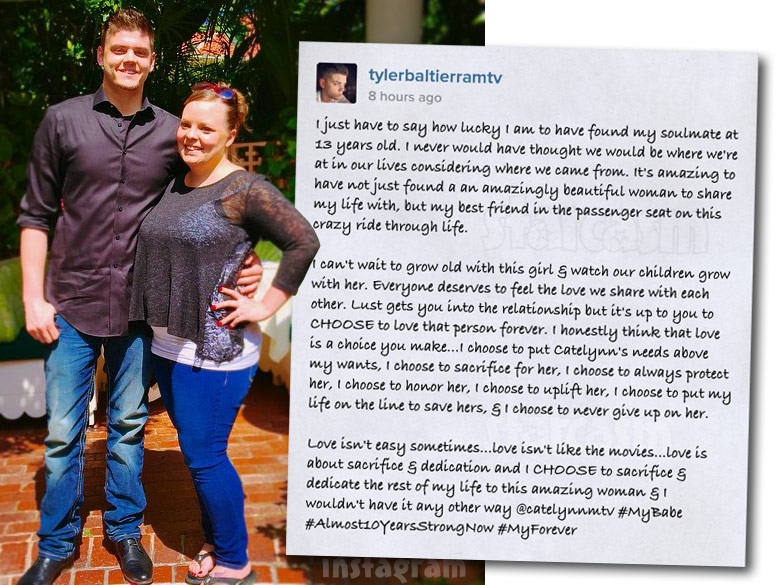 tylerbaltierramtv
8 hours ago
I just have to say how lucky I am to have found my soulmate at
13 years old. I never would have thought we would be where we're
at in our lives considering where we came from. It's amazing to
have not just found a an amazingly beautiful woman to share
my life with, but my best friend in the passenger seat on this
crazy ride through life.
Starcasm
I can't wait to grow old with this girl & watch our children grow
with her. Everyone deserves to feel the love we share with each
other. Lust gets you into the relationship but it's up to you to
CHOOSE to love that person forever. I honestly think that love
is a choice you make...I choose to put Catelynn's needs above
my wants, I choose to sacrifice for her, I choose to always protect
her, I choose to honor her, I choose to uplift her, I choose to put my
life on the line to save hers, & I choose to never give up on her.
Love isn't easy sometimes...love isn't like the movies...love is
about sacrifice & dedication and I CHOOSE to sacrifice &
dedicate the rest of my life to this amazing woman & I
wouldn't have it any other way @catelynnmtv #MyBabe
#Almost10YearsStrongNow #MyForever
Instagram